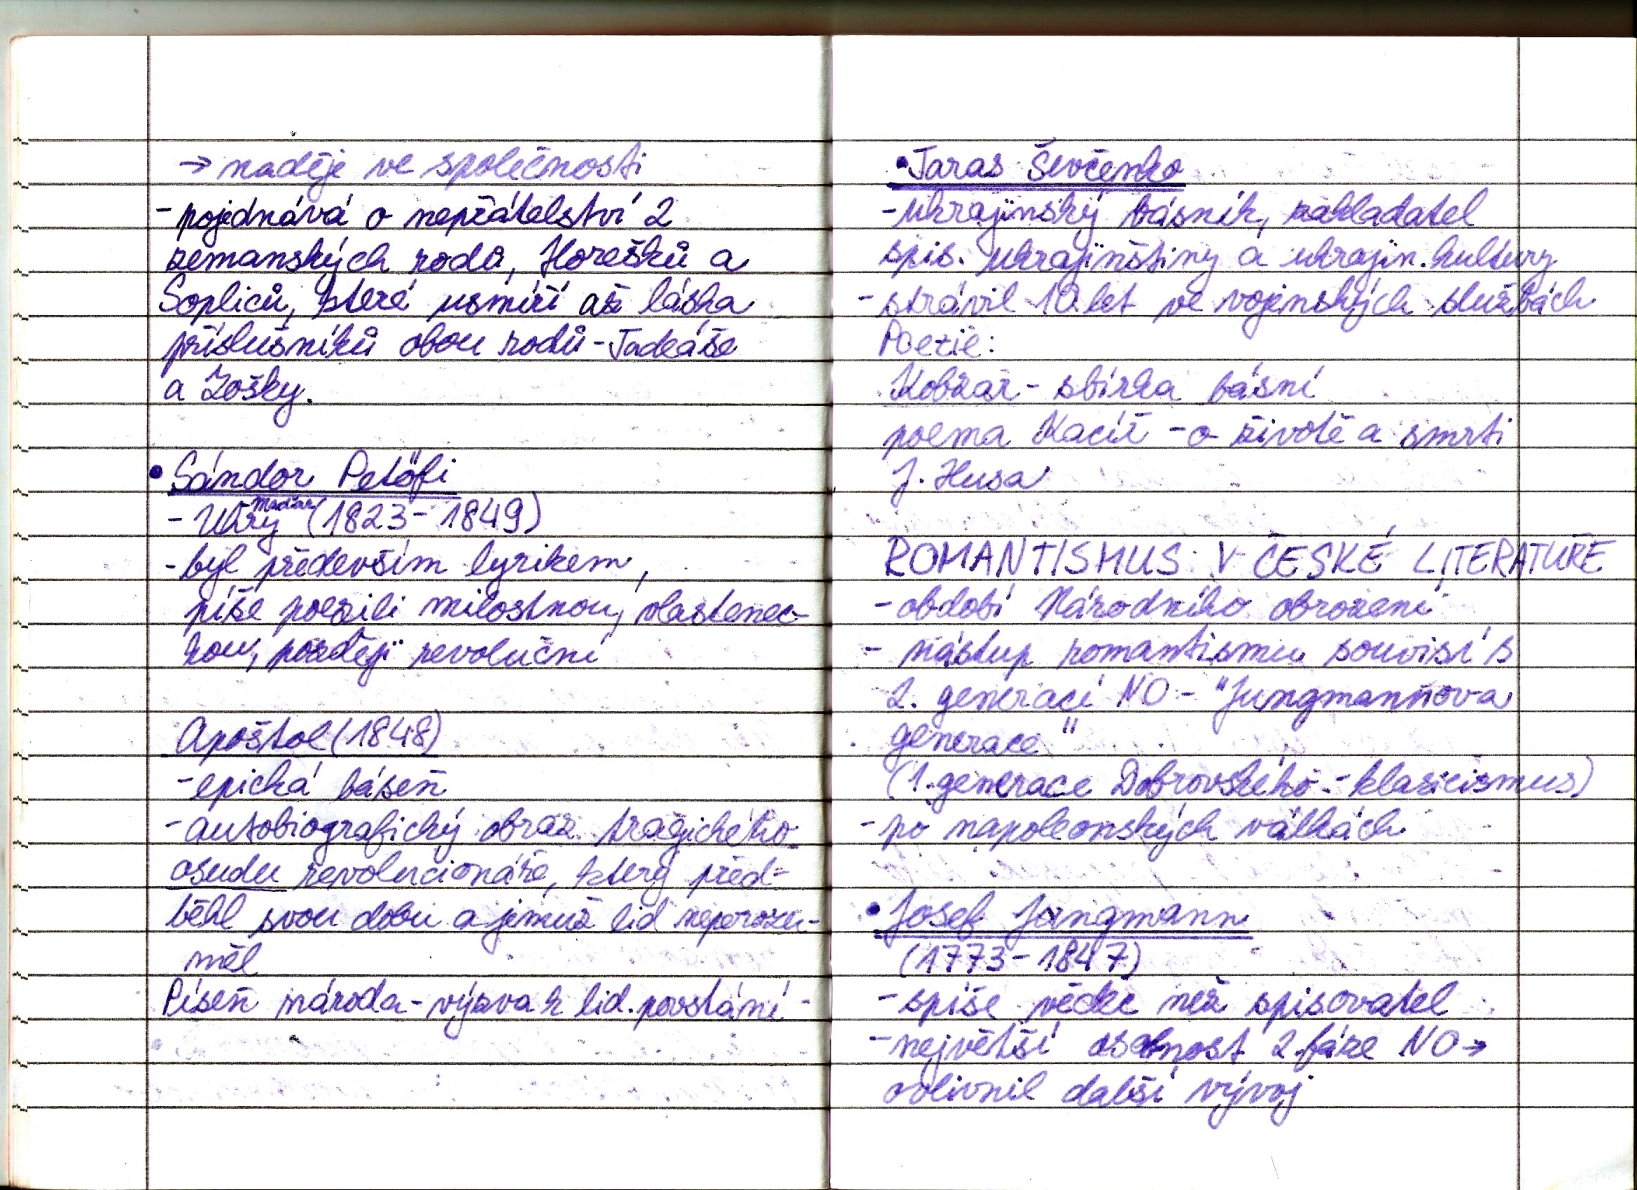 → naděje ve společnosti
- pojednává o nepřátelství 2
zemanských rodů, Horešků a
Sopliců, které usmíří až láska
příslušníků obou rodů - Tadeáše
a Zošky.
• Sándor Petőfi
- Uhry Maďar (1823 - 1849)
- byl především lyrikem,
píše poezii i milostnou, vlastenec-
kou, později revoluční
Apoštol (1848)
- epická báseň
- autobiografický obraz tragického
osudu revolucionáře, který před-
běhl svou dobu a jemuž lid neporozu-
měl
Píseň národa - výzva k lid. povstání
• Taras Ševčenko
- ukrajinský básník, zakladatel
spis. ukrajinštiny a ukrajin. kultury
- strávil 10 let ve vojenských službách
Poezie:
Kobzar - sbírka básní
poema Kacíř - o životě a smrti
J. Husa
ROMANTISMUS V ČESKÉ LITERATUŘE
- období Národního obrození
- nástup romantismu souvisí s
2. generací NO - "Jungmannova
generace"
(1. generace Dobrovského - klasicismus)
- po napoleonských válkách
• Josef Jungmann
(1773 - 1847)
- spíše vědec než spisovatel
- největší osobnost 2. fáze NO →
ovlivnil další vývoj